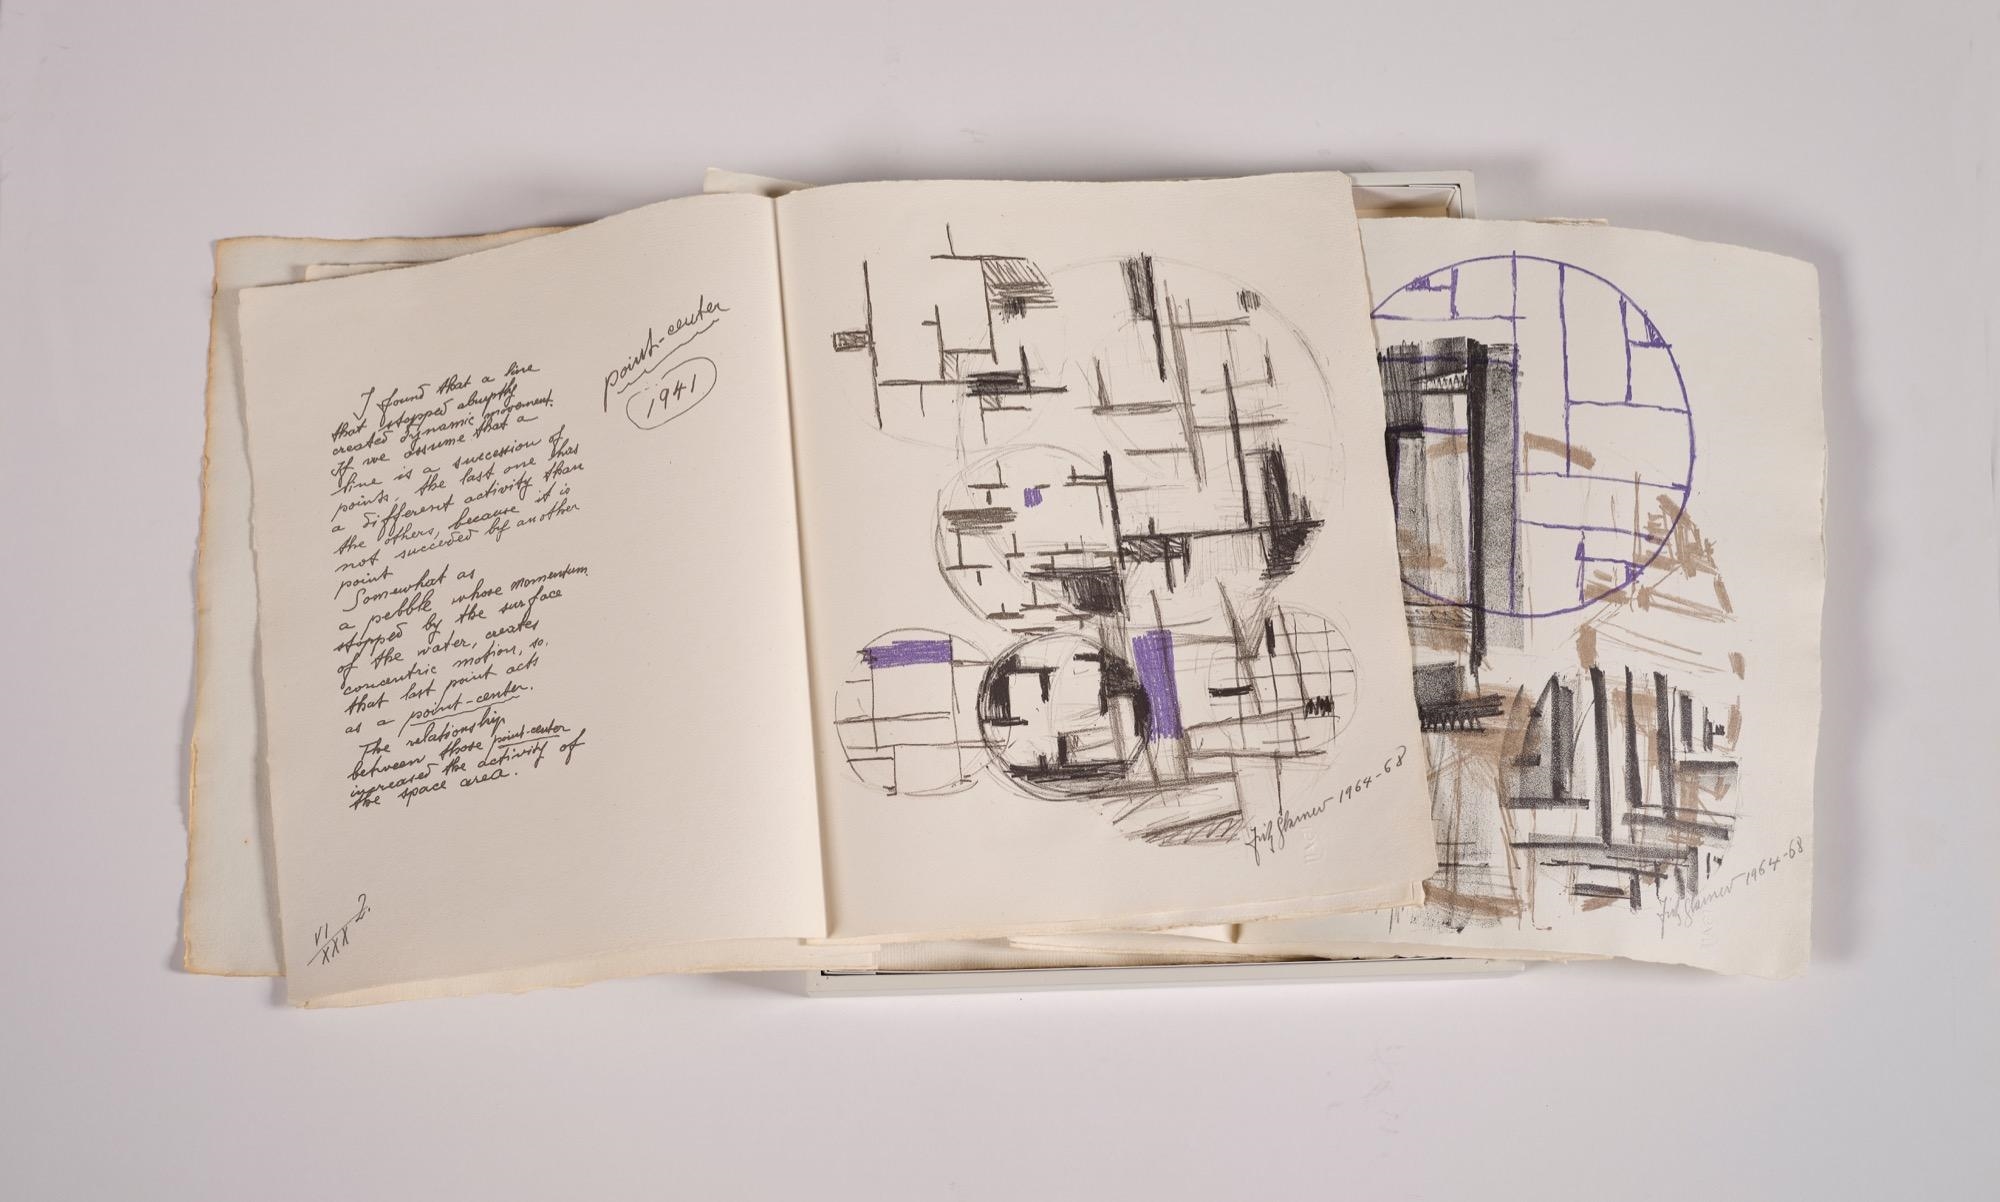 point-center
1941
I found that a line
that stopped abruptly
created dynamic movement.
If we assume that a
line is a succession of
points, the last one has
a different activity than
the others, because it is
not succeeded by another
point
Somewhat as
a pebble whose momentum
stopped by the surface
of the water, creates
concentric motion, so
that last point acts
as a point-center.
The relationship
between those point-center
increased the activity of
the space area.
VI
XXX 2.
Fritz Glarner 1964-68
Fritz Glarner 1964-68